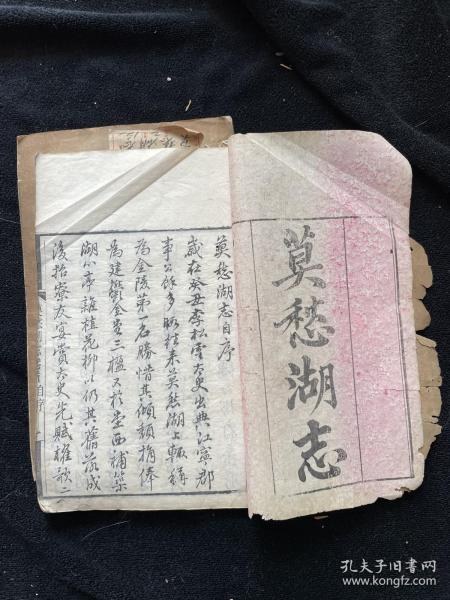 莫愁湖志
莫愁湖志自序
歲在癸丑李松雲太史出典江寧郡
事公餘多暇往来莫愁湖上輒稱
為金陵第一名勝惜其傾頹捐俸
為建鬱金堂三楹又於堂西補築
湖心亭雜植花柳以仍其舊落成
後招寮友宴賞太史先賦雄歌二
自序
孔夫子旧书网
www.kongfz.com